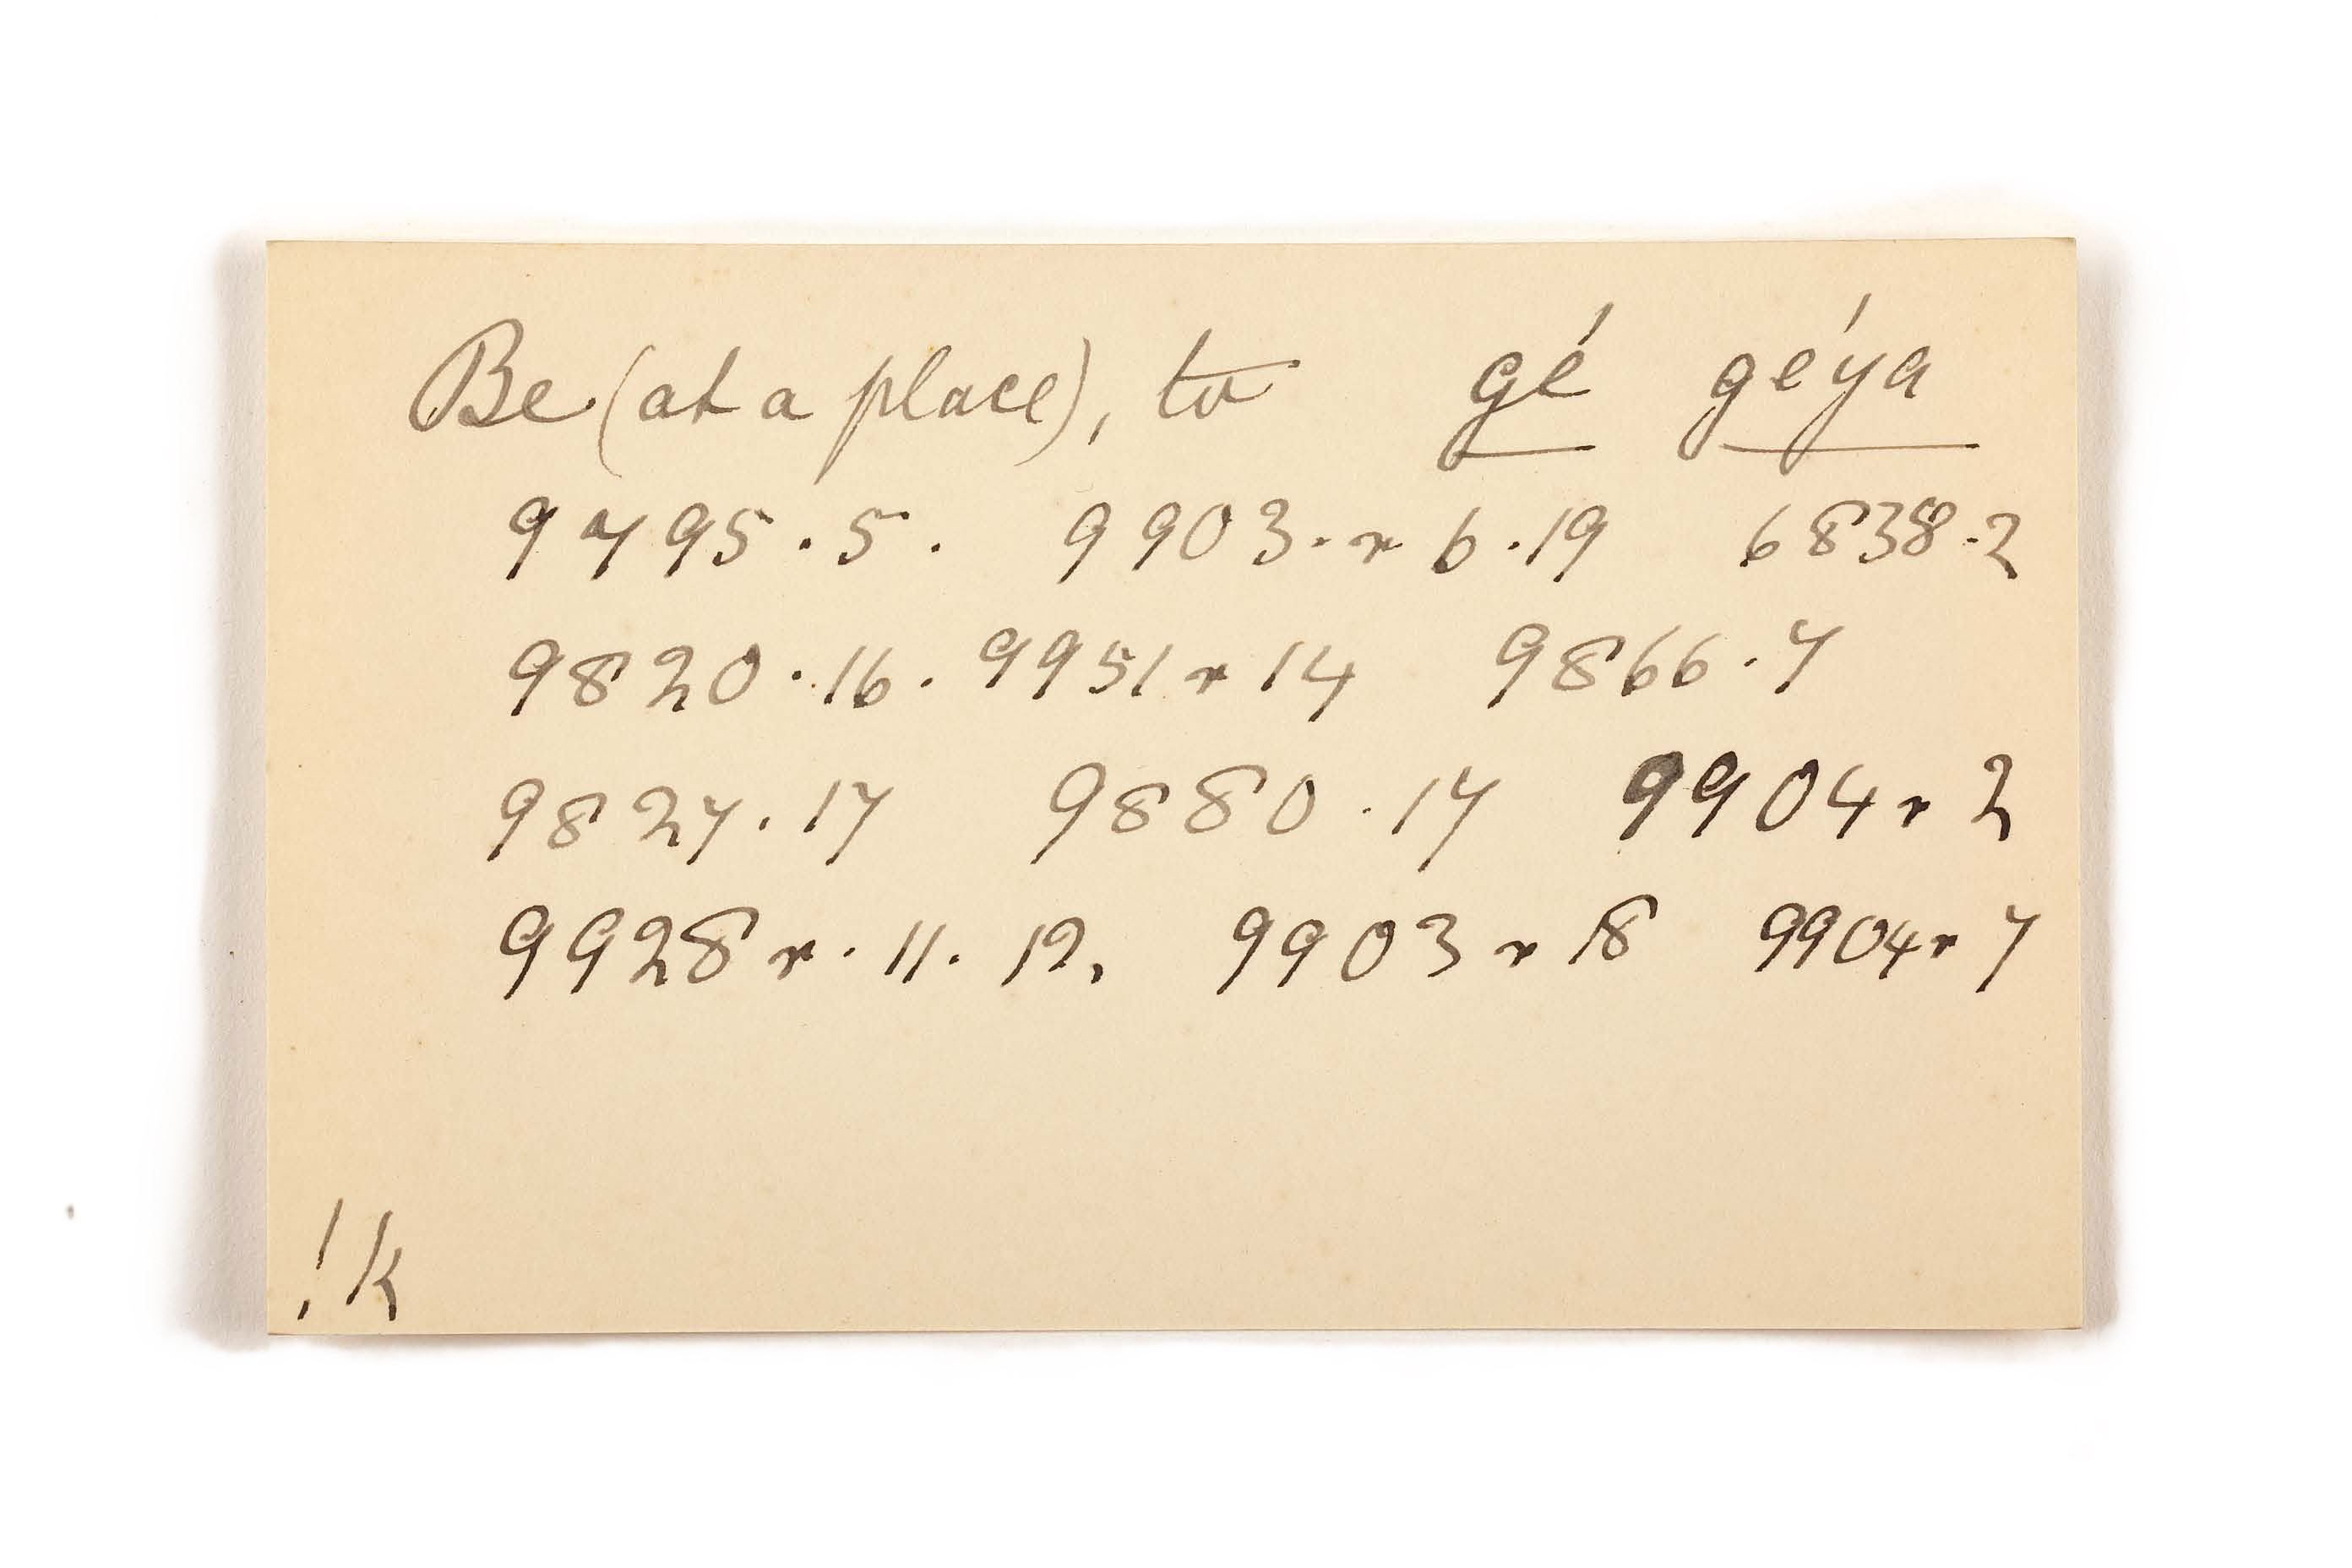 Be (at a place), to gé géya
9795.5. 9903.r 6.19 6838.2
9820.16. 9951 r 14 9866.7
9827.17 9880.17 9904 r 2
9928 r. 11. 12. 9903 r 18 9904 r 7
!k